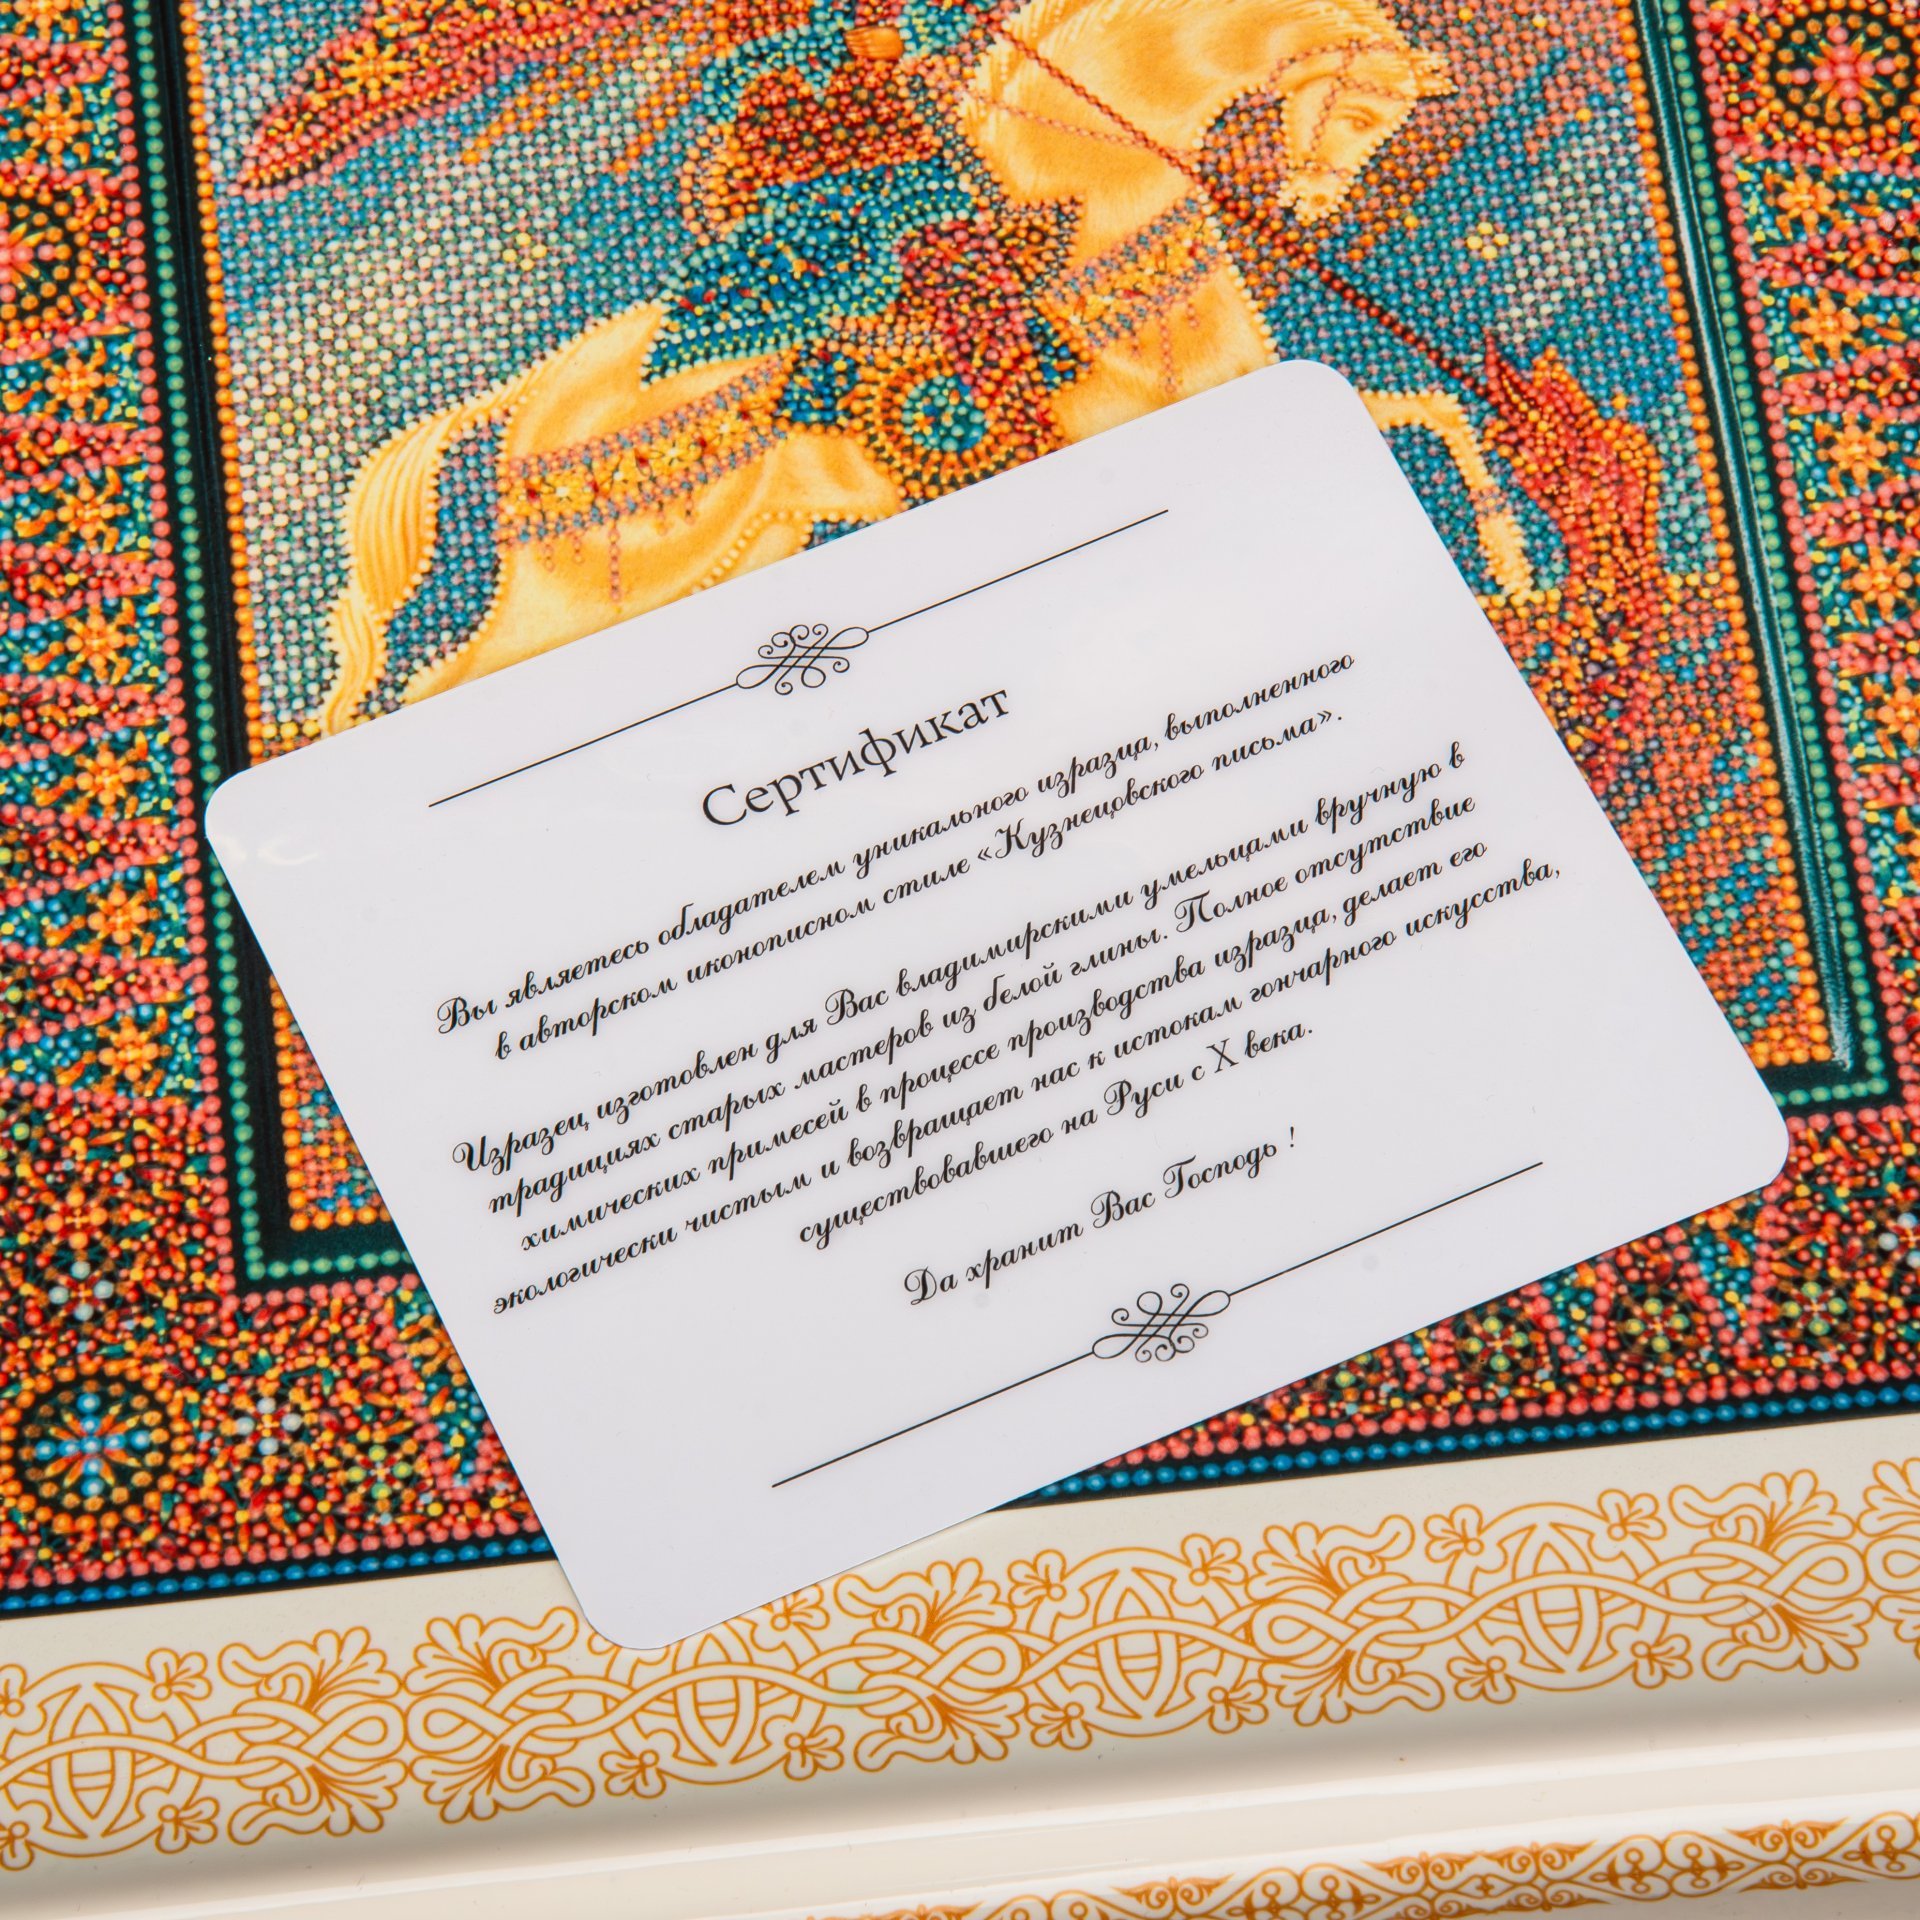 Сертификат
Вы являетесь обладателем уникального изразца, выполненного
в авторском иконописном стиле «Кузнецовского письма».
Изразец, изготовлен для Вас владимирскими умельцами вручную в
традициях старых мастеров из белой глины. Полное отсутствие
химических примесей в процессе производства изразца, делает его
экологически чистым и возвращает нас к истокам гончарного искусства,
существовавшего на Руси с X века.
Да хранит Вас Господь !